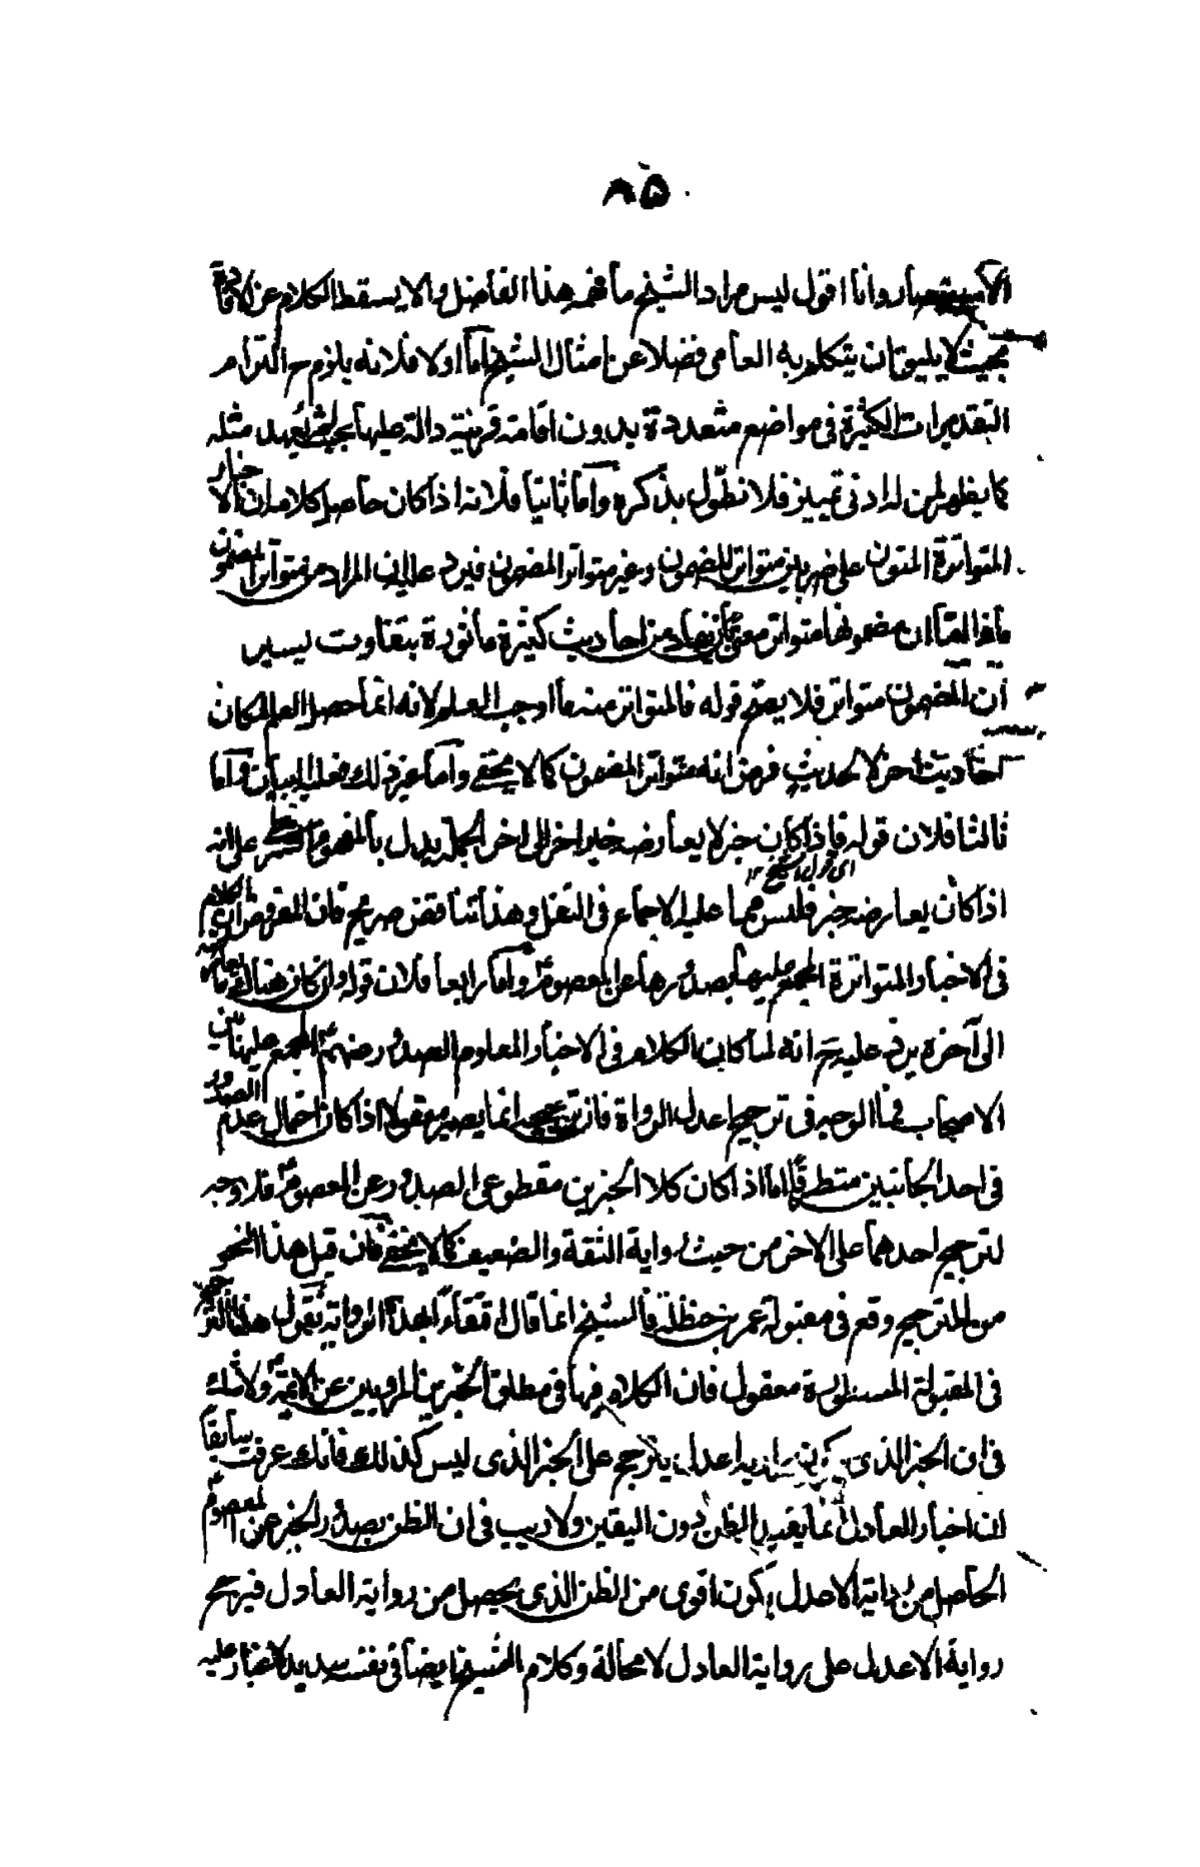 ٨٥
الاستبصار وانا اقول ليس مراد الشيخ ما فهمه هذا الفاضل والا يسقط الكلام عن الافادة
بحيث لا يليق ان يتكلم به العامى فضلا عن امثال الشيخ اما اولا فلانه يلزم ح التزام
التقديرات الكثيرة فى مواضع متعددة بدون اقامة قرينة دالة عليها بحيث لم يعهد مثله
كما يظهر لمن له ادنى تمييز فلا نطول بذكره واما ثانيا فلانه اذا كان حاصل كلامه ان الاخبار
المتواترة المتون على ضربين متواتر المضمون وغير متواتر المضمون فيرد عليه ان المراد من متواتر المضمون
متواتر من احاديث كثيرة ماثورة بتفاوت يسير
ان المضمون متواتر فلا يصح قوله فالمتواتر منه ما اوجب العلم لانه انما حصل العلم لمكان
احاديث اخر لا لحديث فرض انه متواتر المضمون كما لا يخفى واما غير ذلك فعليه البيان واما
ثالثا فلان قوله فاذا كان خبر لا يعارضه خبر اخر الى اخر الجملة يدل بالمفهوم على انه
اى قول الشيخ ١٢
اذا كان يعارضه خبر فليس مما عليه الاجماع فى النقل وهذا تناقض صريح فان المفروض ان الكلام
فى الاخبار المتواترة المجمع عليها بصدورها عن المعصوم واما رابعا فلان قوله وان كان هناك ما يعارضه
الى آخره يرد عليه ح انه لما كان الكلام فى الاخبار المعلوم الصدور عنهم المجمع عليها بين
الاصحاب فما الوجه فى ترجيح اعدل الرواة فان ترجيحه انما يصير معقولا اذا كان احتمال عدم الصدور
فى احد الجانبين متطرقا اما اذا كان كلا الخبرين مقطوعى الصدور عن المعصوم فلا وجه
لترجيح احدهما على الاخر من حيث رواية الثقة والضعيف كما لا يخفى فان قيل هذا النحو
من الترجيح وقع فى مقبولة عمر بن حنظلة فالشيخ انما قال اقتفاء لهذا الرواية نقول هذا الترجيح
فى المقبولة المسطورة معقول فان الكلام فيها فى مطلق الخبرين المرويين عن الائمة ولا شك
فى ان الخبر الذى يكون راويه اعدل يترجح على الخبر الذى ليس كذلك فانك عرفت سابقا
ان اخبار العادل انما يفيد الظن دون اليقين ولا ريب فى ان الظن بصدور الخبر عن المعصوم
الحاصل من رواية الاعدل يكون اقوى من الظن الذى يحصل من رواية العادل فيرجح
رواية الاعدل على رواية العادل لا محالة وكلام الشيخ ايضا فى نفسه سديد لا غبار عليه